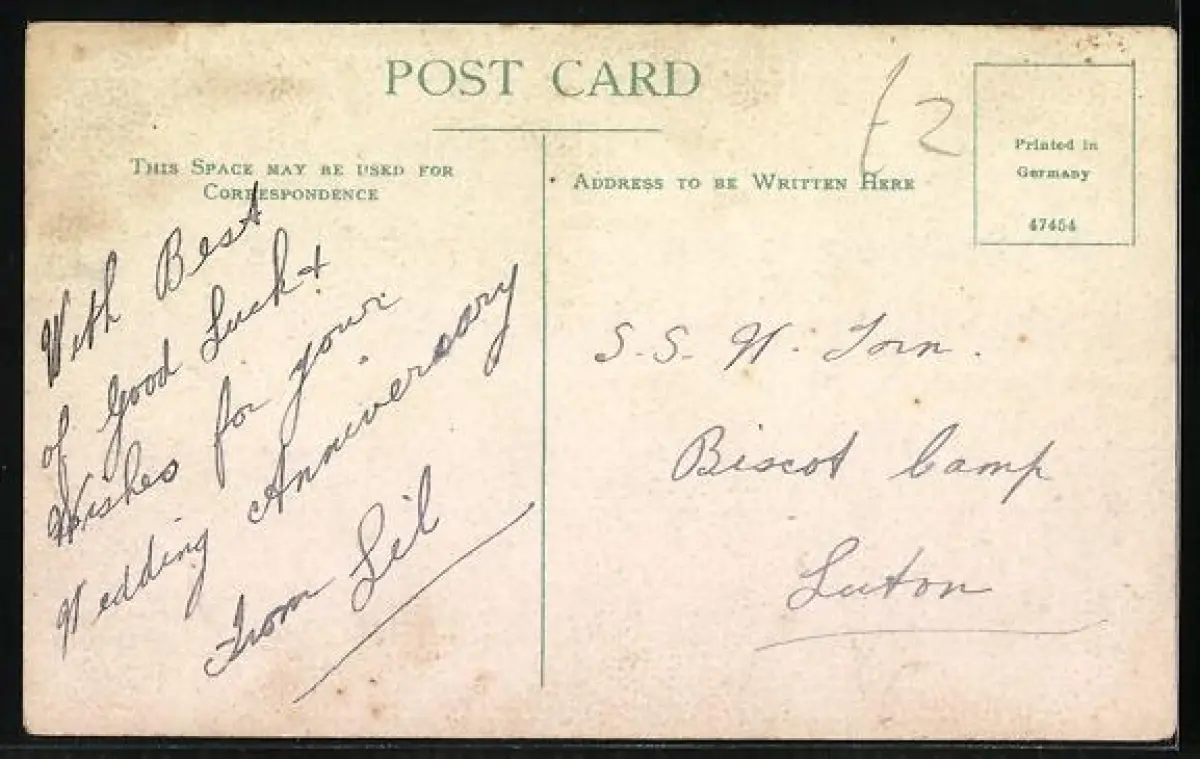 POST CARD
THIS SPACE MAY BE USED FOR
CORRESPONDENCE
With Best
of Good Luck +
Wishes for your
Wedding Anniversary
from Lil
ADDRESS TO BE WRITTEN HERE
£2
Printed in
Germany
47454
S.S. W.
Biscot Camp
Luton